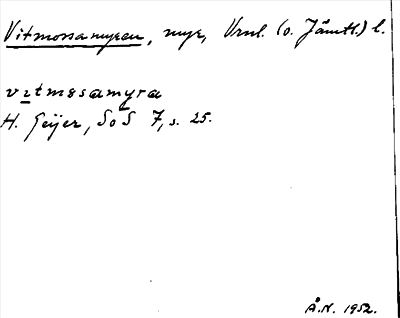 Vitmossamyren, myr, Vrnl. (o. Jämtl.) l.
vɩtmosamyra
H. Geijer, SoS 7, s. 25.
Å.N. 1952.